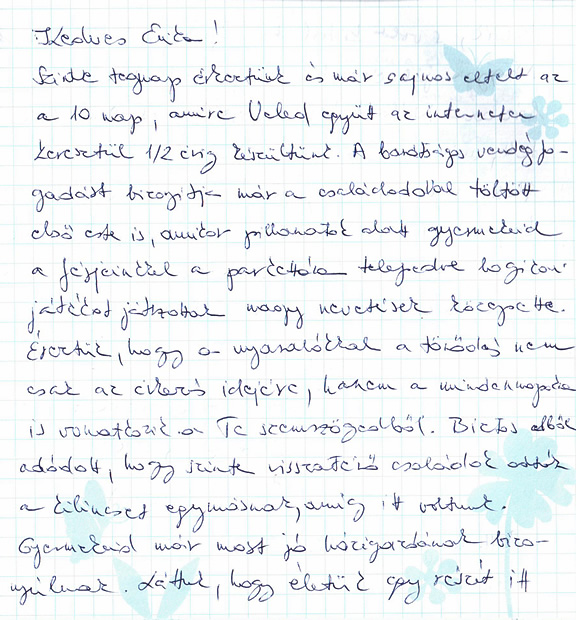 Kedves Erika!
Szinte tegnap érkeztünk és már sajnos eltelt az
a 10 nap, amire Veled együtt az interneten
keresztül 1/2 évig készültünk. A barátságos vendégfo-
gadást bizonyítja már a családoddal töltött
első este is, amikor pillanatok alatt gyermekeid
a férjeinkkel a parkettára telepedve logikai
játékot játszottak nagy nevetések közepette.
Éreztük, hogy a nyaralókkal a törődés nem
csak az érkezés idejére, hanem a mindennapokra
is vonatkozik a Te szemszögedből. Biztos ebből
adódott, hogy szinte visszatérő családok adták
a kilincset egymásnak, amíg itt voltunk.
Gyermekeid már most jó házigazdának bizo-
nyulnak. Láttuk, hogy életük egy részét itt